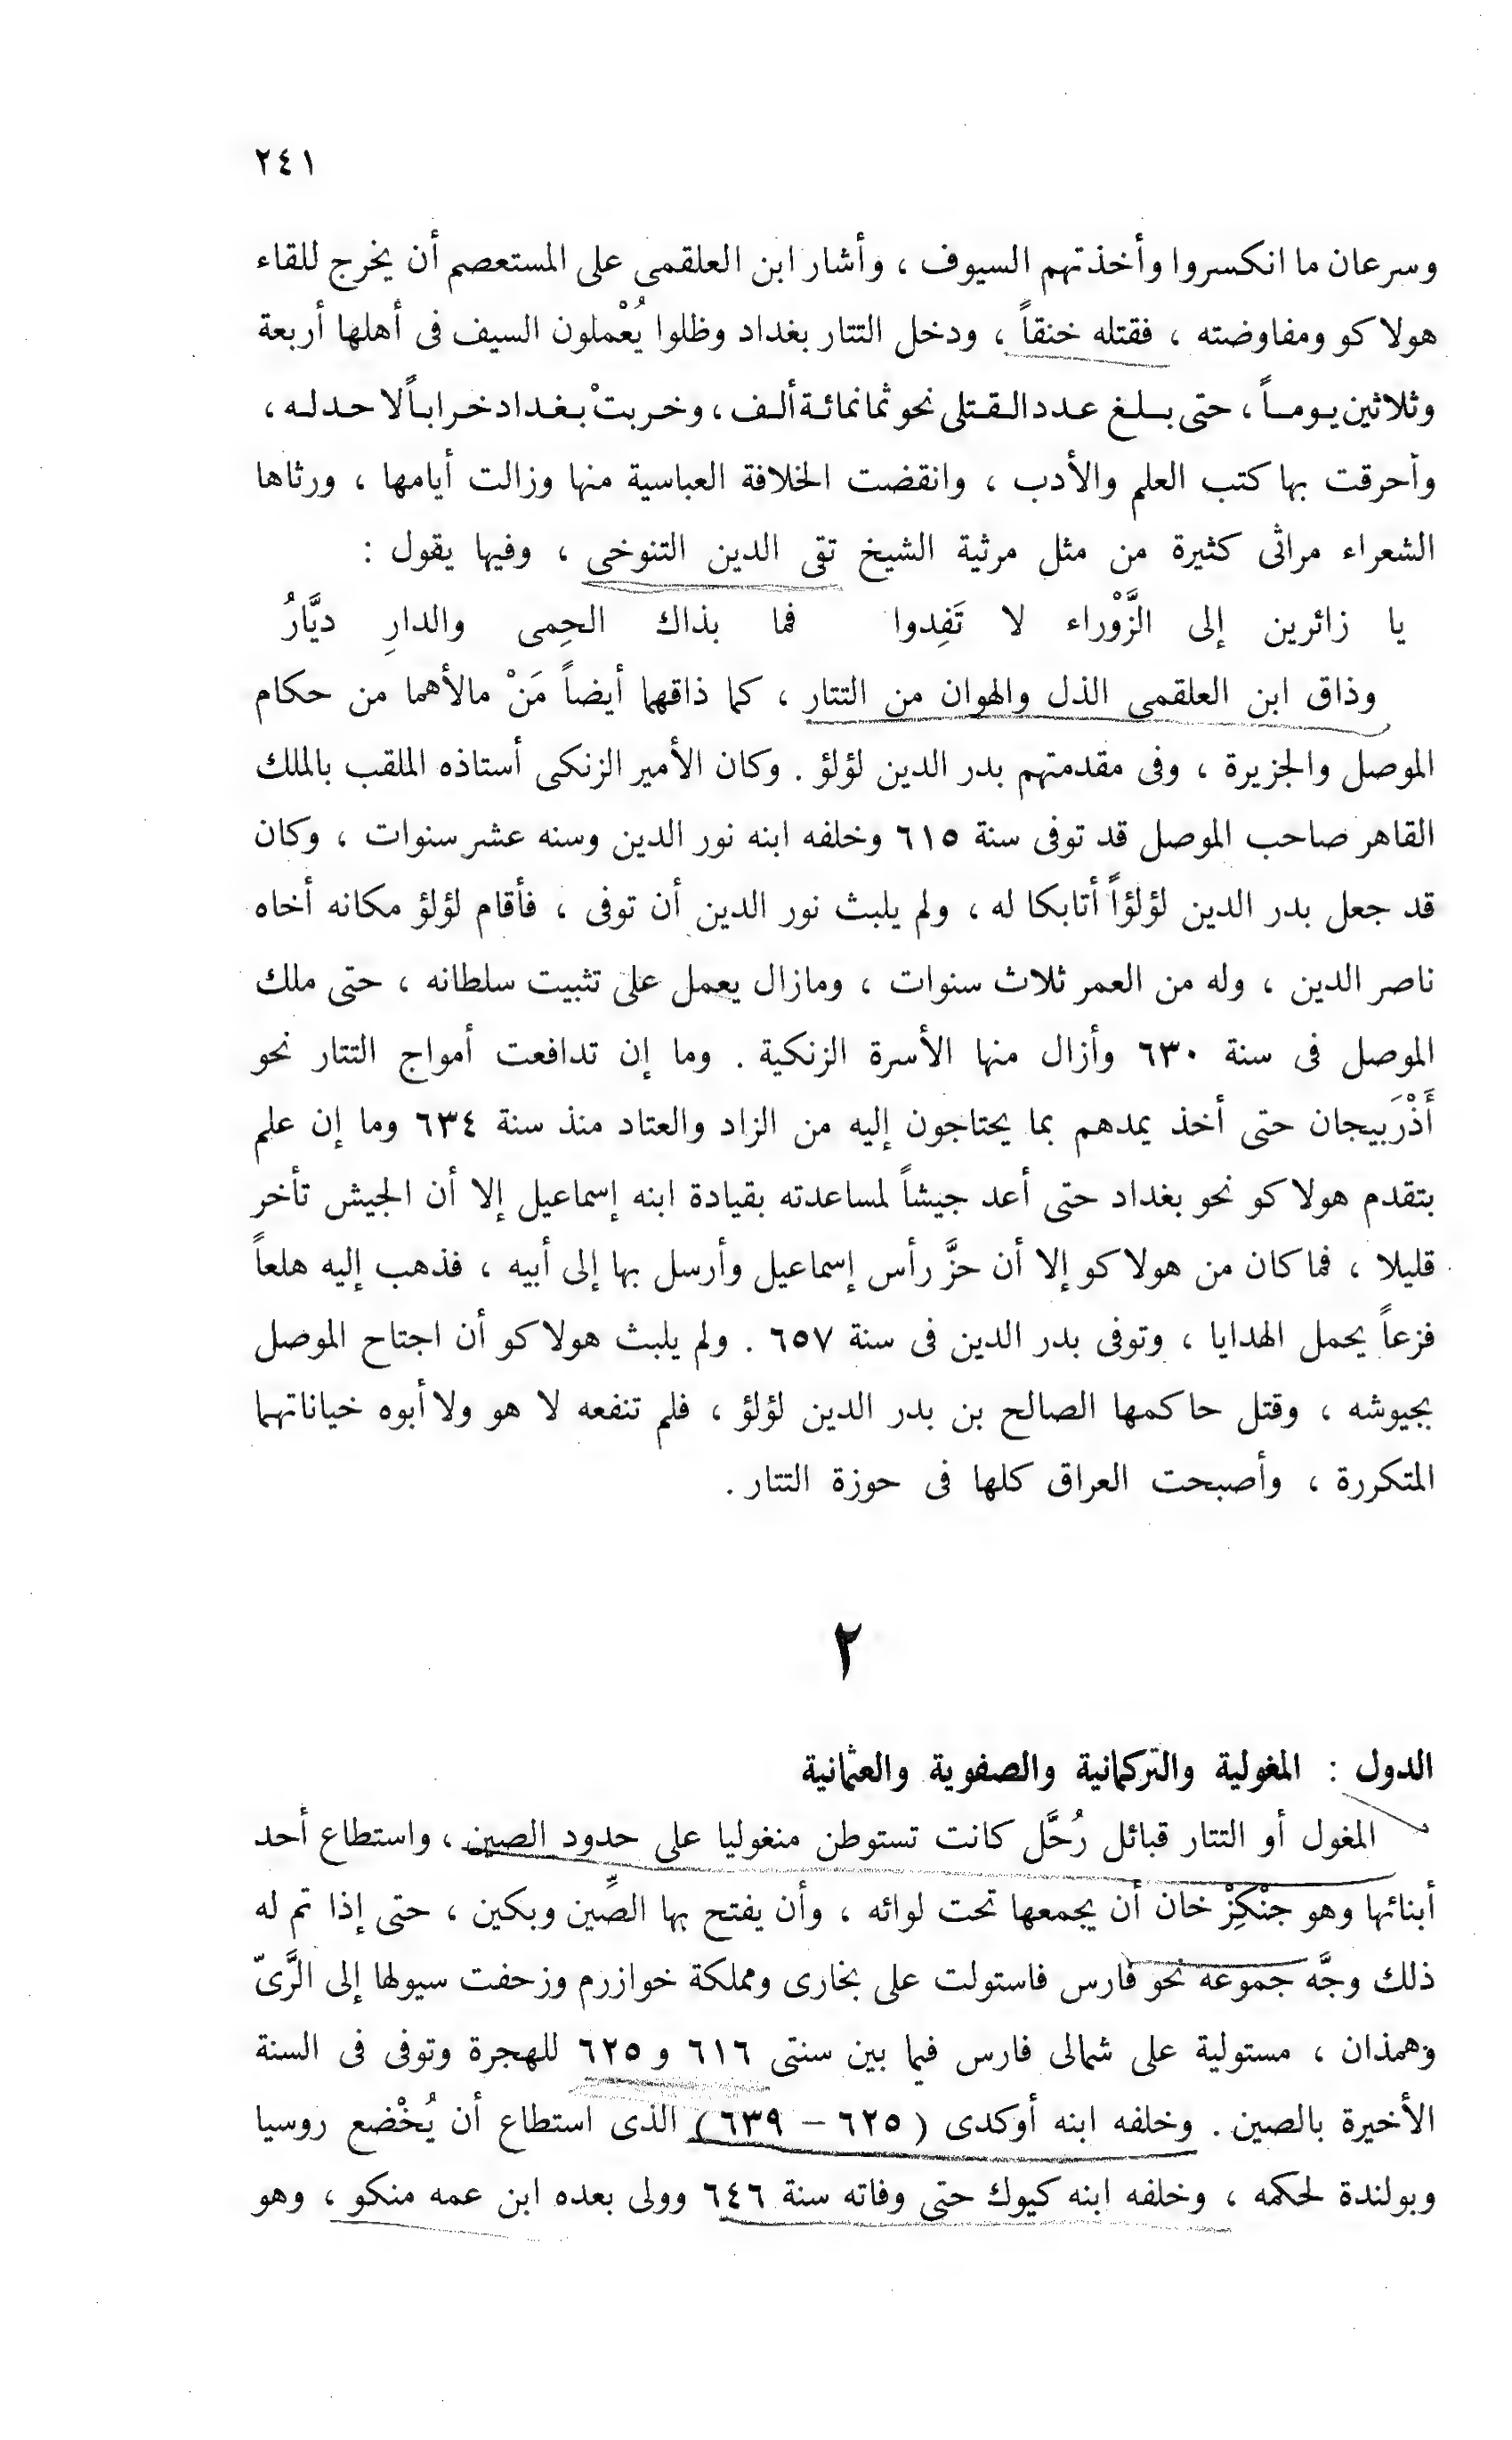 ٢٤١
وسرعان ما انكسروا وأخذتهم السيوف ، وأشار ابن العلقمى على المستعصم أن يخرج للقاء
هولاكو ومفاوضته ، فقتله خنقاً ، ودخل التتار بغداد وظلوا يُعْملون السيف فى أهلها أربعة
وثلاثين يوماً ، حتى بلغ عدد القتلى نحو ثمانمائة ألف ، وخربتْ بغداد خراباً لا حد له ،
وأحرقت بها كتب العلم والأدب ، وانقضت الخلافة العباسية منها وزالت أيامها ، ورثاها
الشعراء مراثى كثيرة من مثل مرثية الشيخ تقى الدين التنوخى ، وفيها يقول :
يا زائرين إلى الزَّوْراء لا تَفِدوا فما بذاك الحِمى والدارِ ديَّارُ
وذاق ابن العلقمى الذل والهوان من التتار ، كما ذاقهما أيضاً مَنْ مالأهما من حكام
الموصل والجزيرة ، وفى مقدمتهم بدر الدين لؤلؤ . وكان الأمير الزنكى أستاذه الملقب بالملك
القاهر صاحب الموصل قد توفى سنة ٦١٥ وخلفه ابنه نور الدين وسنه عشر سنوات ، وكان
قد جعل بدر الدين لؤلؤاً أتابكا له ، ولم يلبث نور الدين أن توفى ، فأقام لؤلؤ مكانه أخاه
ناصر الدين ، وله من العمر ثلاث سنوات ، ومازال يعمل على تثبيت سلطانه ، حتى ملك
الموصل فى سنة ٦٣٠ وأزال منها الأسرة الزنكية . وما إن تدافعت أمواج التتار نحو
أَذْرَبيجان حتى أخذ يمدهم بما يحتاجون إليه من الزاد والعتاد منذ سنة ٦٣٤ وما إن علم
بتقدم هولاكو نحو بغداد حتى أعد جيشاً لمساعدته بقيادة ابنه إسماعيل إلا أن الجيش تأخر
قليلا ، فما كان من هولاكو إلا أن حزَّ رأس إسماعيل وأرسل بها إلى أبيه ، فذهب إليه هلعاً
فزعاً يحمل الهدايا ، وتوفى بدر الدين فى سنة ٦٥٧ . ولم يلبث هولاكو أن اجتاح الموصل
بجيوشه ، وقتل حاكمها الصالح بن بدر الدين لؤلؤ ، فلم تنفعه لا هو ولا أبوه خياناتهما
المتكررة ، وأصبحت العراق كلها فى حوزة التتار .
٢
الدول : المغولية والتركمانية والصفوية والعثمانية
المغول أو التتار قبائل رُحَّل كانت تستوطن منغوليا على حدود الصين ، واستطاع أحد
أبنائها وهو جنْكِزْ خان أن يجمعها تحت لوائه ، وأن يفتح بها الصِّين وبكين ، حتى إذا تم له
ذلك وجَّه جموعه نحو فارس فاستولت على بخارى ومملكة خوازرم وزحفت سيولها إلى الرَّىّ
وهمذان ، مستولية على شمالى فارس فيما بين سنتى ٦١٦ و ٦٢٥ للهجرة وتوفى فى السنة
الأخيرة بالصين . وخلفه ابنه أوكدى ( ٦٢٥ – ٦٣٩ ) الذى استطاع أن يُخْضع روسيا
وبولندة لحكمه ، وخلفه ابنه كيوك حتى وفاته سنة ٦٤٦ وولى بعده ابن عمه منكو ، وهو